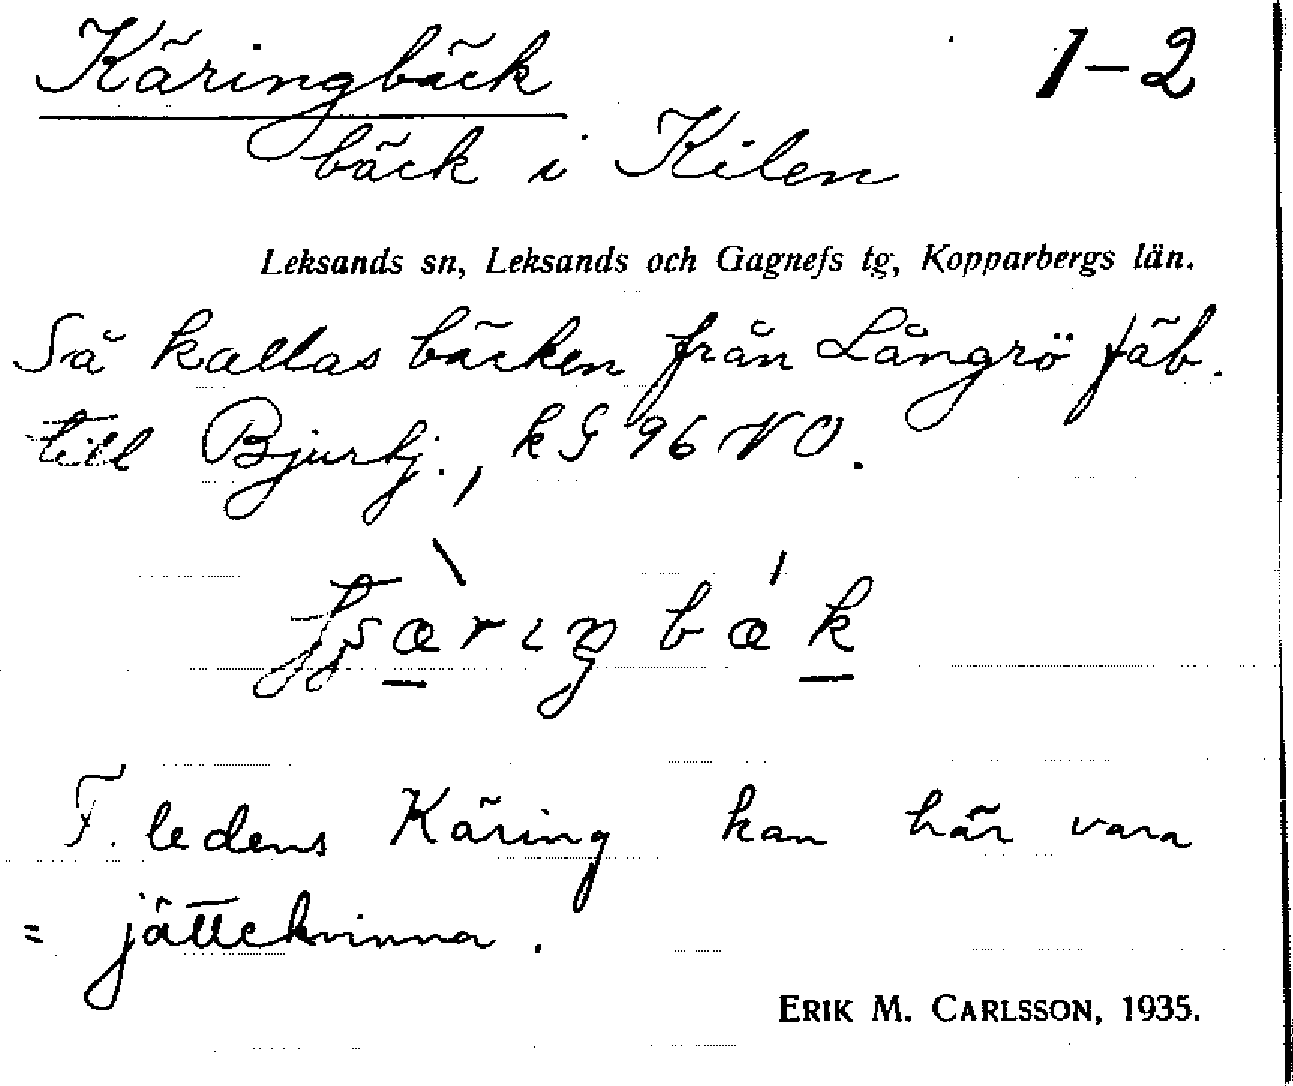 Käringbäck 1–2
bäck i Kilen
Leksands sn, Leksands och Gagnefs tg, Kopparbergs län.
Så kallas bäcken från Långrö fäb.
till Bjurtj., kG 96 NO.
F. ledens Käring kan här vara
= jättekvinna.
ERIK M. CARLSSON, 1935.